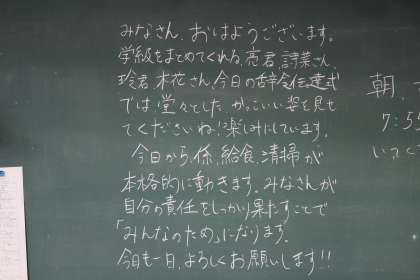 みなさん、おはようございます。
学級をまとめてくれる、亮君、詩葉さん、
玲君、木花さん、今日の辞令伝達式
では、堂々とした、かっこいい姿を見せ
てくださいね!楽しみにしています。
今日から、係、給食、清掃が
本格的に動きます。みなさんが
自分の責任をしっかり果たすことで
「みんなのため」になります。
今日も一日、よろしくお願いします!!
朝、
7:5
いって